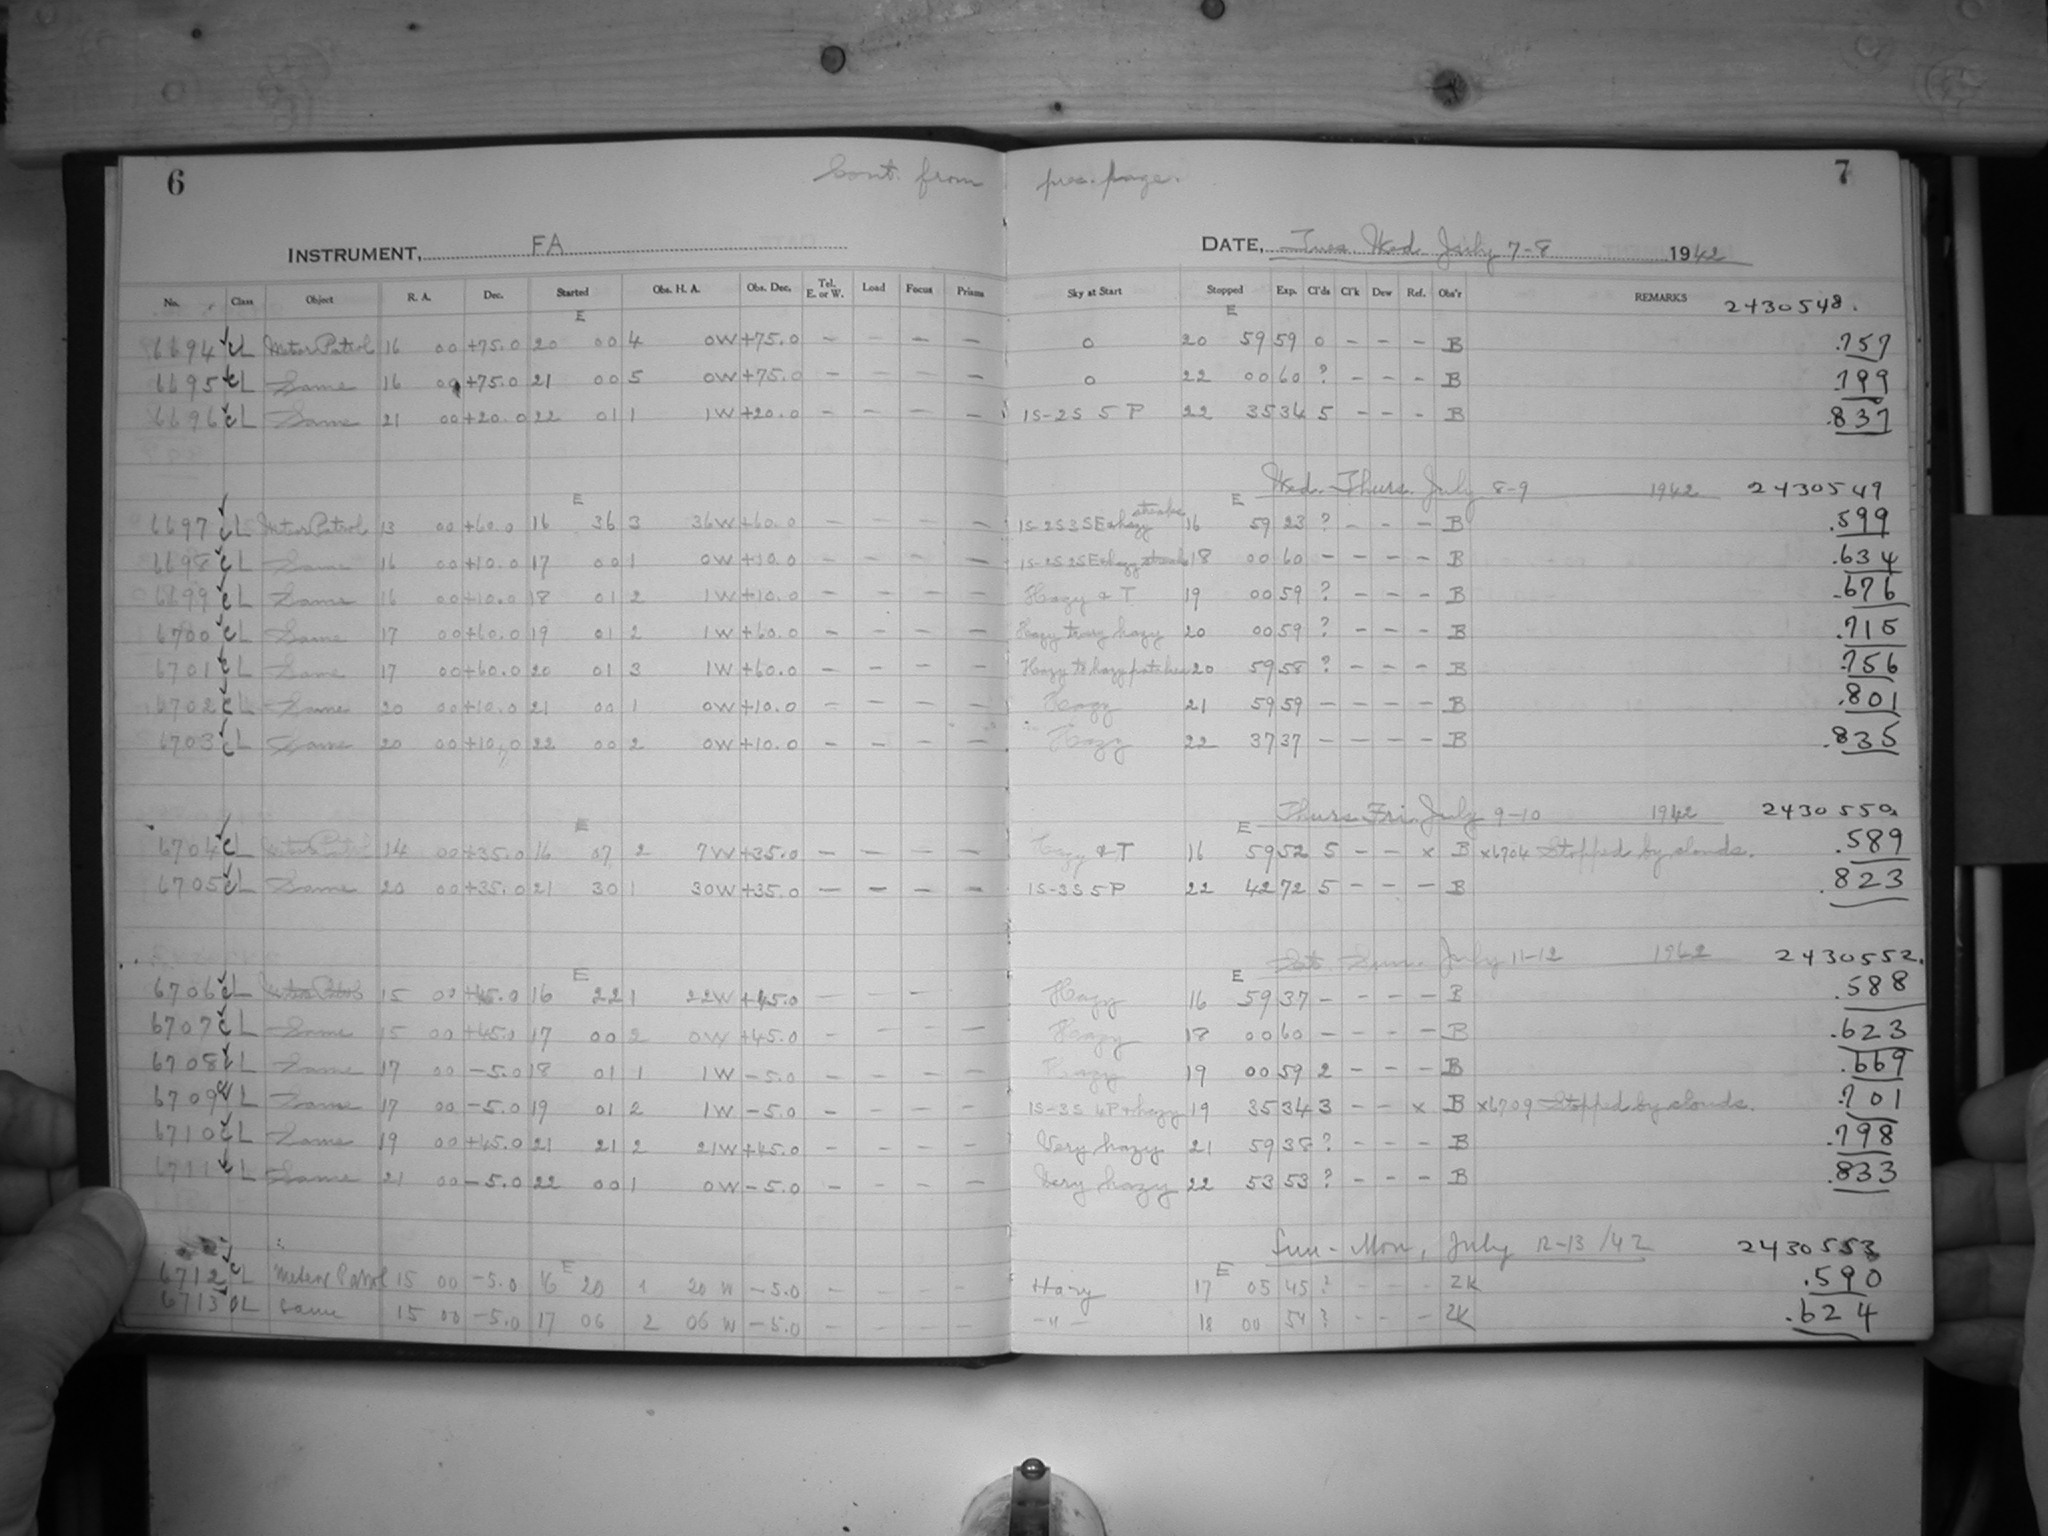 6 Cont. from prec. page. 7
INSTRUMENT, FA DATE, Tues. Wed. July 7-8 1942
No. Class Object R. A. Dec. Started Obs. H. A. Obs. Dec. Tel. E. or W. Load Focus Prisms Sky at Start Stopped Exp. Cl'ds Cl'k Dew Ref. Obs'r REMARKS 2430548.
E E
6694 cL Meteor Patrol 16 00 +75.0 20 00 4 0W +75.0 - - - - 0 20 59 59 0 - - - B .757
6695 cL Same 16 00 +75.0 21 00 5 0W +75.0 - - - - 0 22 00 60 ? - - - B .799
6696 cL Same 21 00 +20.0 22 01 1 1W +20.0 - - - - 1S-2S 5 P 22 35 34 5 - - - B .837
E E Wed. Thurs. July 8-9 1942 2430549
6697 cL Meteor Patrol 13 00 +60.0 16 36 3 36W +60.0 - - - - 1S-2S 3SE+hazy streaks 16 59 23 ? - - - B .599
6698 cL Same 16 00 +10.0 17 00 1 0W +10.0 - - - - 1S-2S 2SE+hazy streaks 18 00 60 - - - - B .634
6699 cL Same 16 00 +10.0 18 01 2 1W +10.0 - - - - Hazy & T 19 00 59 ? - - - B .676
6700 cL Same 17 00 +60.0 19 01 2 1W +60.0 - - - - Hazy to very hazy 20 00 59 ? - - - B .715
6701 cL Same 17 00 +60.0 20 01 3 1W +60.0 - - - - Hazy to hazy patches 20 59 58 ? - - - B .756
6702 cL Same 20 00 +10.0 21 00 1 0W +10.0 - - - - Hazy 21 59 59 - - - - B .801
6703 cL Same 20 00 +10.0 22 00 2 0W +10.0 - - - - Hazy 22 37 37 - - - - B .835
E E Thurs. Fri. July 9-10 1942 2430550.
6704 cL Meteor Patrol 14 00 +35.0 16 07 2 7W +35.0 - - - - Hazy & T 16 59 52 5 - - x B x6704 Stopped by clouds. .589
6705 cL Same 20 00 +35.0 21 30 1 30W +35.0 - - - - 1S-3S 5 P 22 42 72 5 - - - B .823
E E Sat. Sun. July 11-12 1942 2430552.
6706 cL Meteor Patrol 15 00 +45.0 16 22 1 22W +45.0 - - - Hazy 16 59 37 - - - - B .588
6707 cL Same 15 00 +45.0 17 00 2 0W +45.0 - - - - Hazy 18 00 60 - - - - B .623
6708 cL Same 17 00 -5.0 18 01 1 1W -5.0 - - - - Hazy 19 00 59 2 - - - B .669
6709 cL Same 17 00 -5.0 19 01 2 1W -5.0 - - - - 1S-3S 4P+hazy 19 35 34 3 - - x B x6709 Stopped by clouds. .701
6710 cL Same 19 00 +45.0 21 21 2 21W +45.0 - - - - Very hazy 21 59 38 ? - - - B .798
6711 cL Same 21 00 -5.0 22 00 1 0W -5.0 - - - - Very hazy 22 53 53 ? - - - B .833
Sun - Mon, July 12-13/42 2430553
E E
6712 cL Meteor Patrol 15 00 -5.0 16 20 1 20 W -5.0 - - - - Hazy 17 05 45 ? - - - ZK .590
6713 cL same 15 00 -5.0 17 06 2 06 W -5.0 - - - - -"- 18 00 54 ? - - - ZK .624